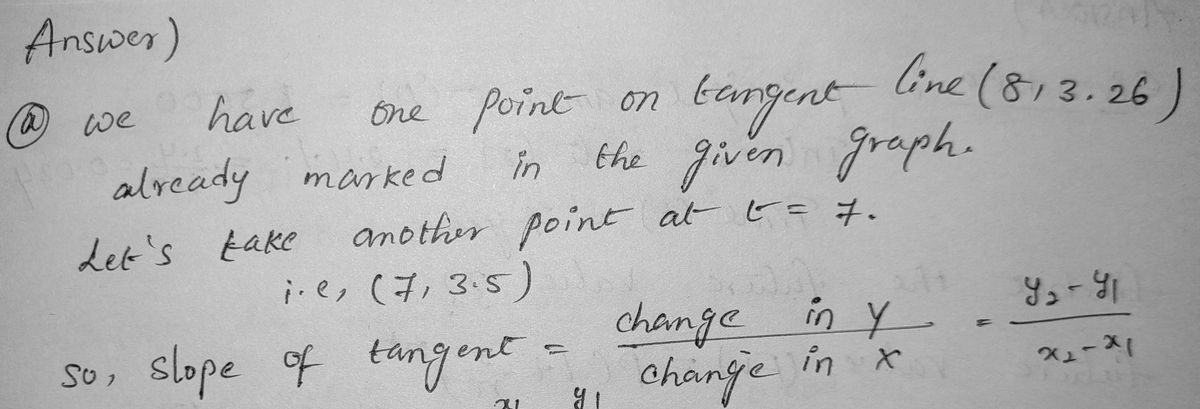 Answer)
ⓐ we have one point on tangent line (8, 3.26)
already marked in the given graph.
Let's take another point at t = 7.
i.e, (7, 3.5)
so, slope of tangent = change in y / change in x = y₂-y₁ / x₂-x₁
x₁ y₁